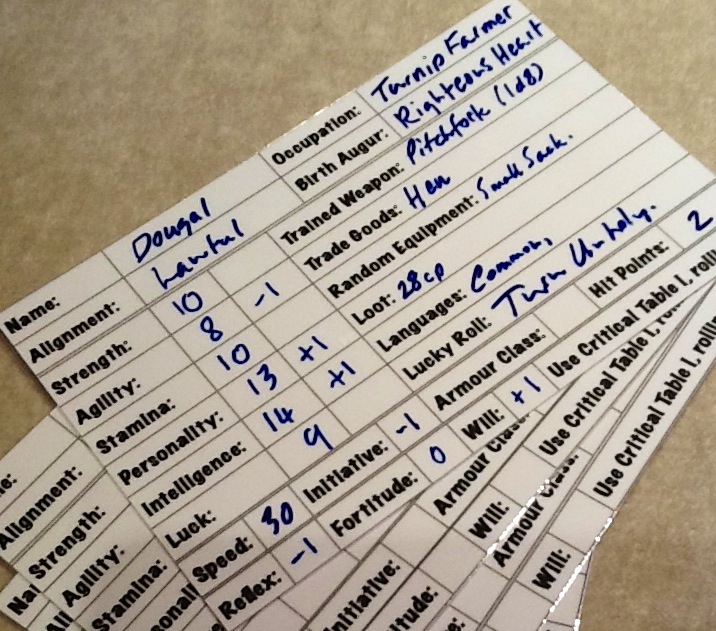 Name: Dougal
Alignment: Lawful
Strength: 10
Agility: 8 -1
Stamina: 10
Personality: 13 +1
Intelligence: 14 +1
Luck: 9
Speed: 30 Initiative: -1 Armour Class:
Reflex: -1 Fortitude: 0 Will: +1 Use Critical Table I, roll
Occupation: Turnip Farmer
Birth Augur: Righteous Heart
Trained Weapon: Pitchfork (1d8)
Trade Goods: Hen
Random Equipment: Small Sack.
Loot: 28cp
Languages: Common,
Lucky Roll: Twin Unholy.
Hit Points: 2
Alignment:
Strength:
Agility:
Stamina:
Initiative:
Armour Class
Will:
Use Critical Table I, roll
Armour Class:
Will:
Use Critical Table I, rolli